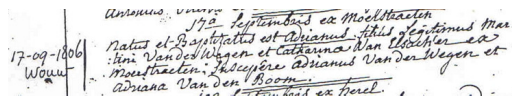 17a Septembris ex Moelstraeten
17-09-1806
Wouw
Natus et Baptisatus est Adrianus filius legitimus Mar
tini Van der Wegen et Catharina Van ex
Moelstraeten: Suscepêre Adrianus Van der Wegen et
Adriana Van den Boom.
Septembris ex herel